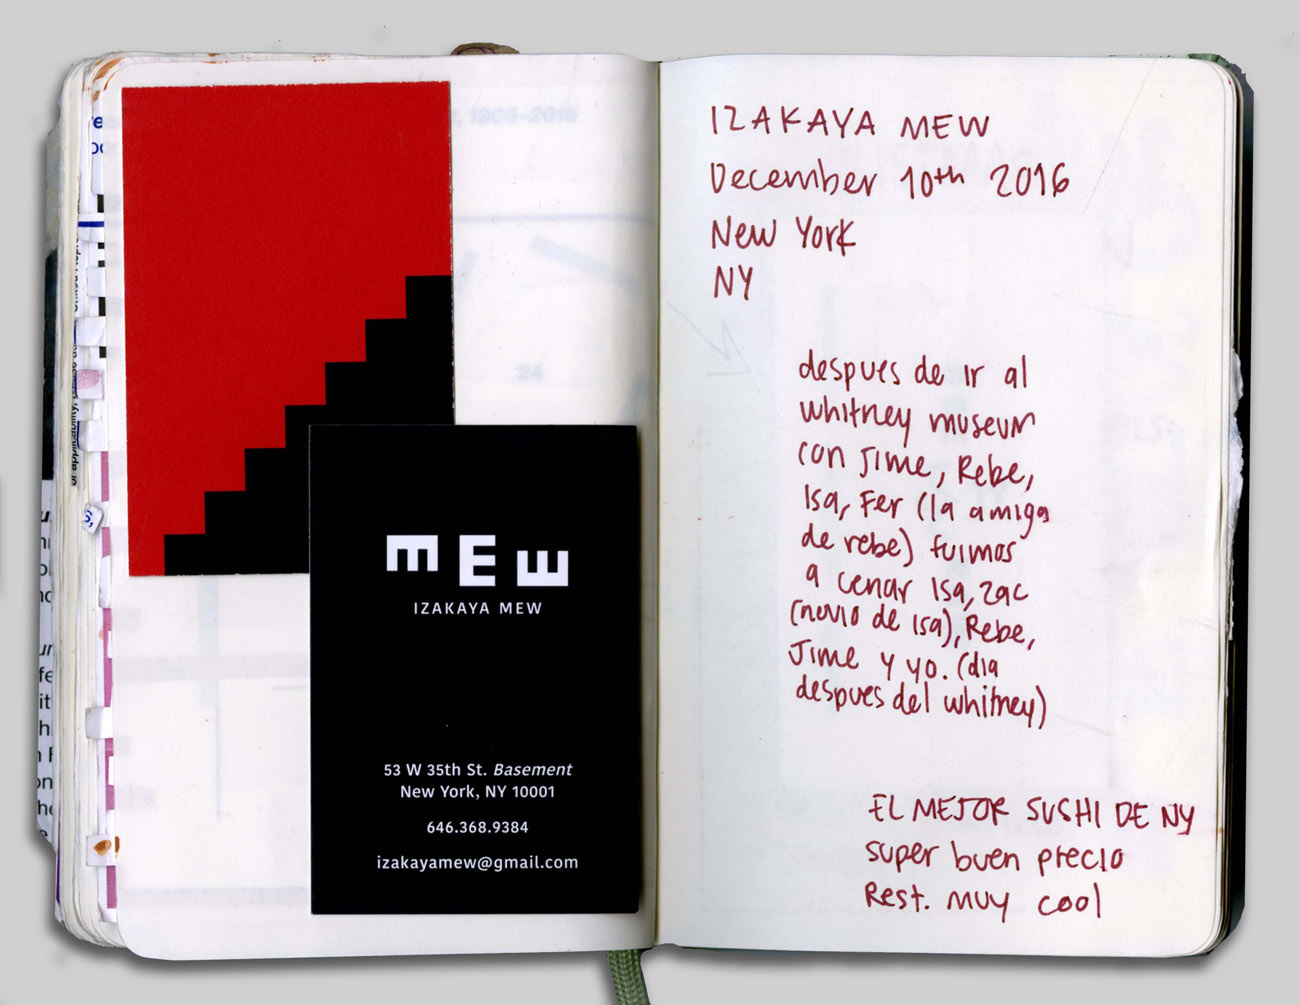 1905-2016
24
mEw
IZAKAYA MEW
53 W 35th St. Basement
New York, NY 10001
646.368.9384
izakayamew@gmail.com
IZAKAYA MEW
December 10th 2016
New York
NY
despues de ir al
whitney museum
con Jime, Rebe,
Isa, Fer (la amiga
de rebe) fuimos
a cenar Isa, zac
(novio de Isa), Rebe,
Jime y yo. (dia
despues del whitney)
EL MEJOR SUSHI DE NY
super buen precio
Rest. muy cool